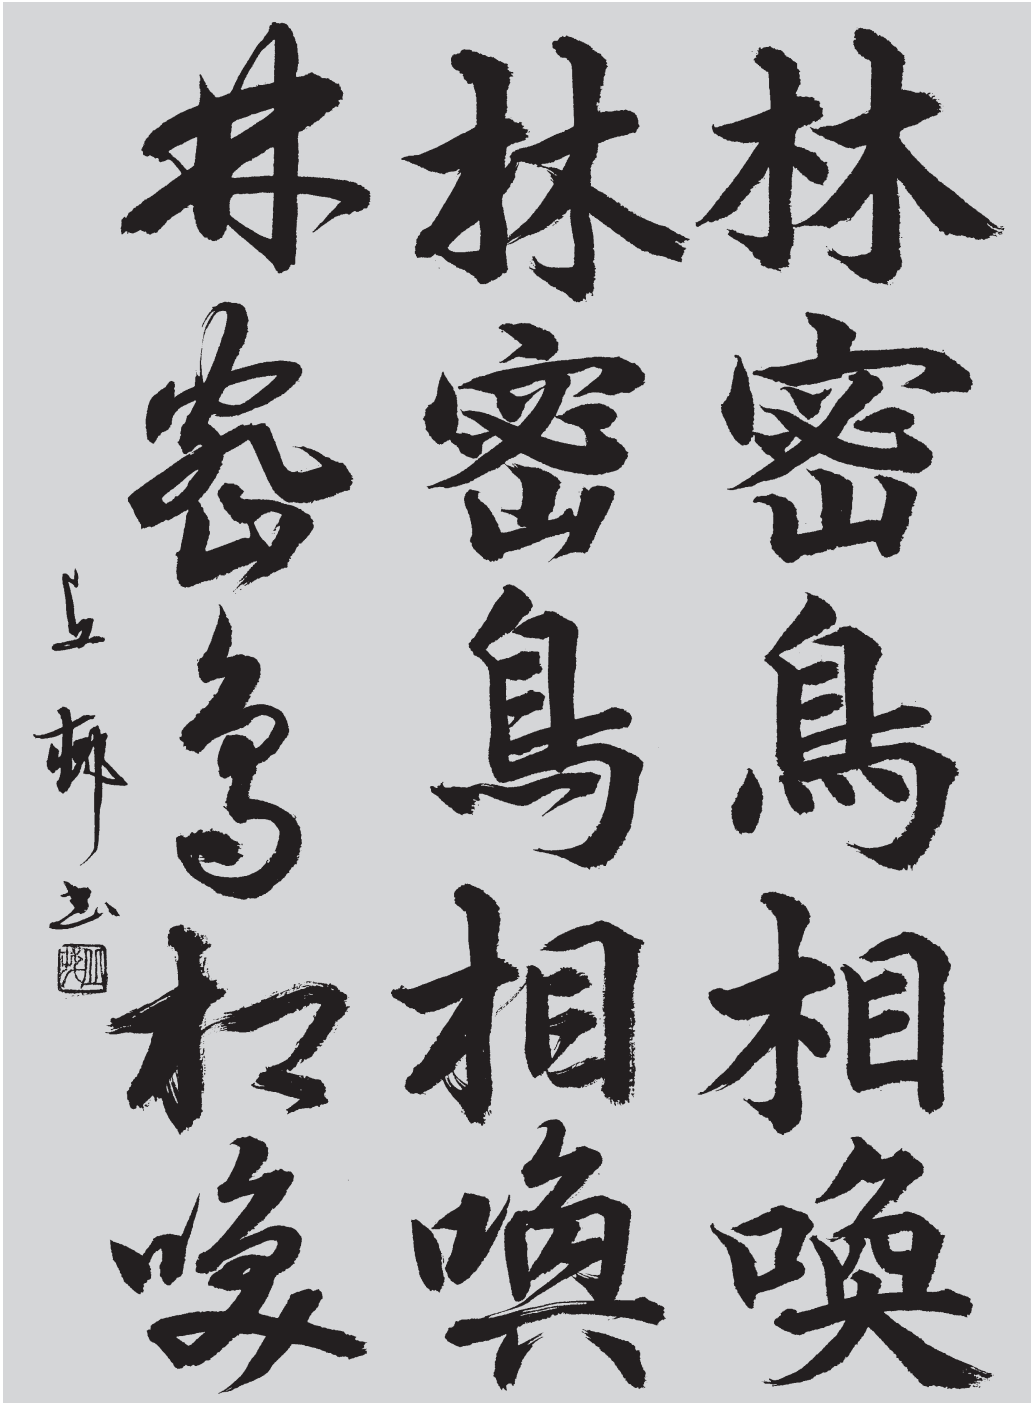 林密鳥相喚
林密鳥相喚
林密鳥相喚